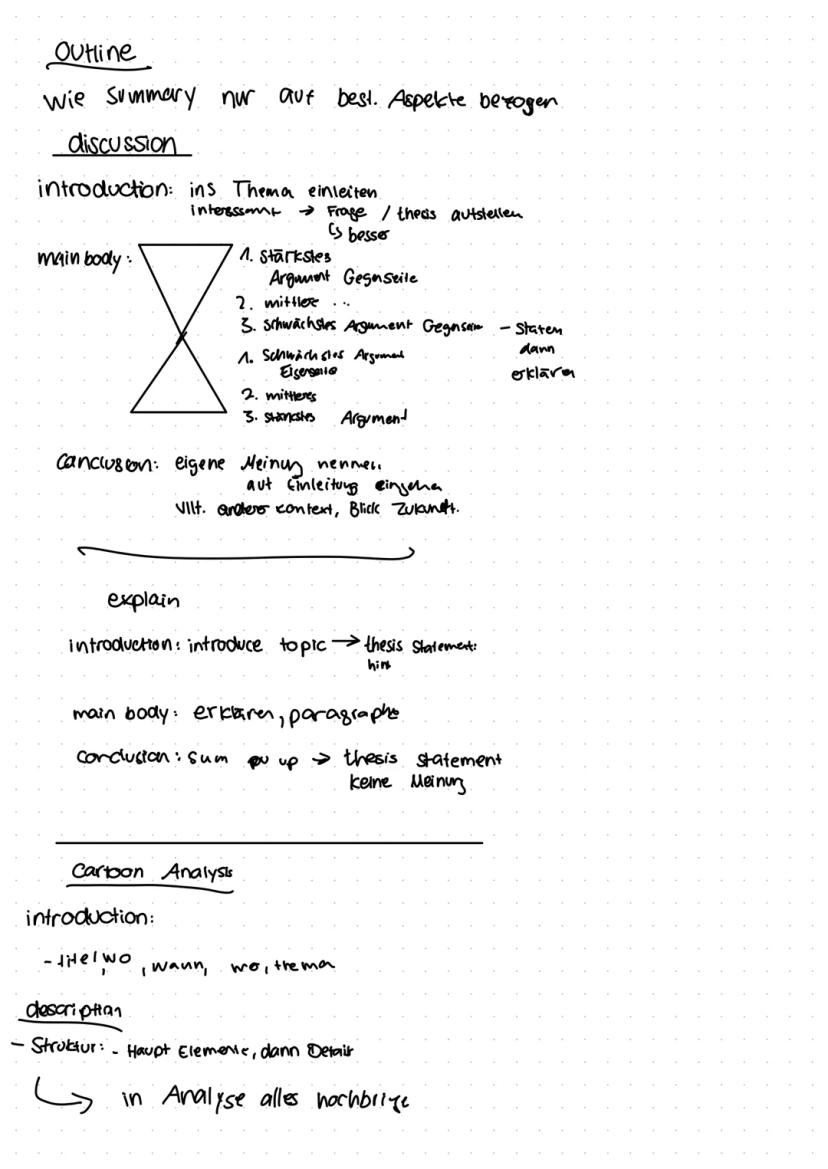 Outline
Wie Summary nur auf best. Aspekte bezogen
discussion
introduction: ins Thema einleiten
interessant → Frage / thesis aufstellen
↳ besser
main body: 1. stärkstes
Argument Gegenseite
2. mittlere ...
3. schwächstes Argument - Staten
dann
erklären
1. Schwächstes Argument
2. mittleres
3. stärkstes Argument
conclusion: eigene Meinung nennen.
auf Einleitung eingehen
Vllt. anderer context, Blick Zukunft.
explain
introduction: introduce topic → thesis statement:
main body: erklären, paragraphs
conclusion: sum up → thesis statement
keine Meinung
Cartoon Analysis
introduction:
- titel, wo, wann, wo, thema
description
- Struktur: - Haupt Elemente, dann Detail
↳ in Analyse alles